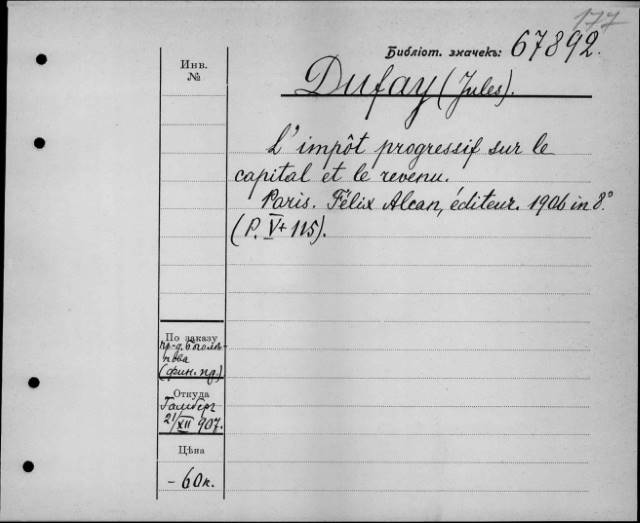 177
Библіот. значекъ: 67892.
Инв.
№
Dufay (Jules).
L'impôt progressif sur le
capital et le revenu.
Paris. Félix Alcan, éditeur. 1906 in 8°
(P. V + 115).
По заказу
(фин. пд.)
Откуда
Гамберг
21/XII 907.
Цѣна
- 60 к.